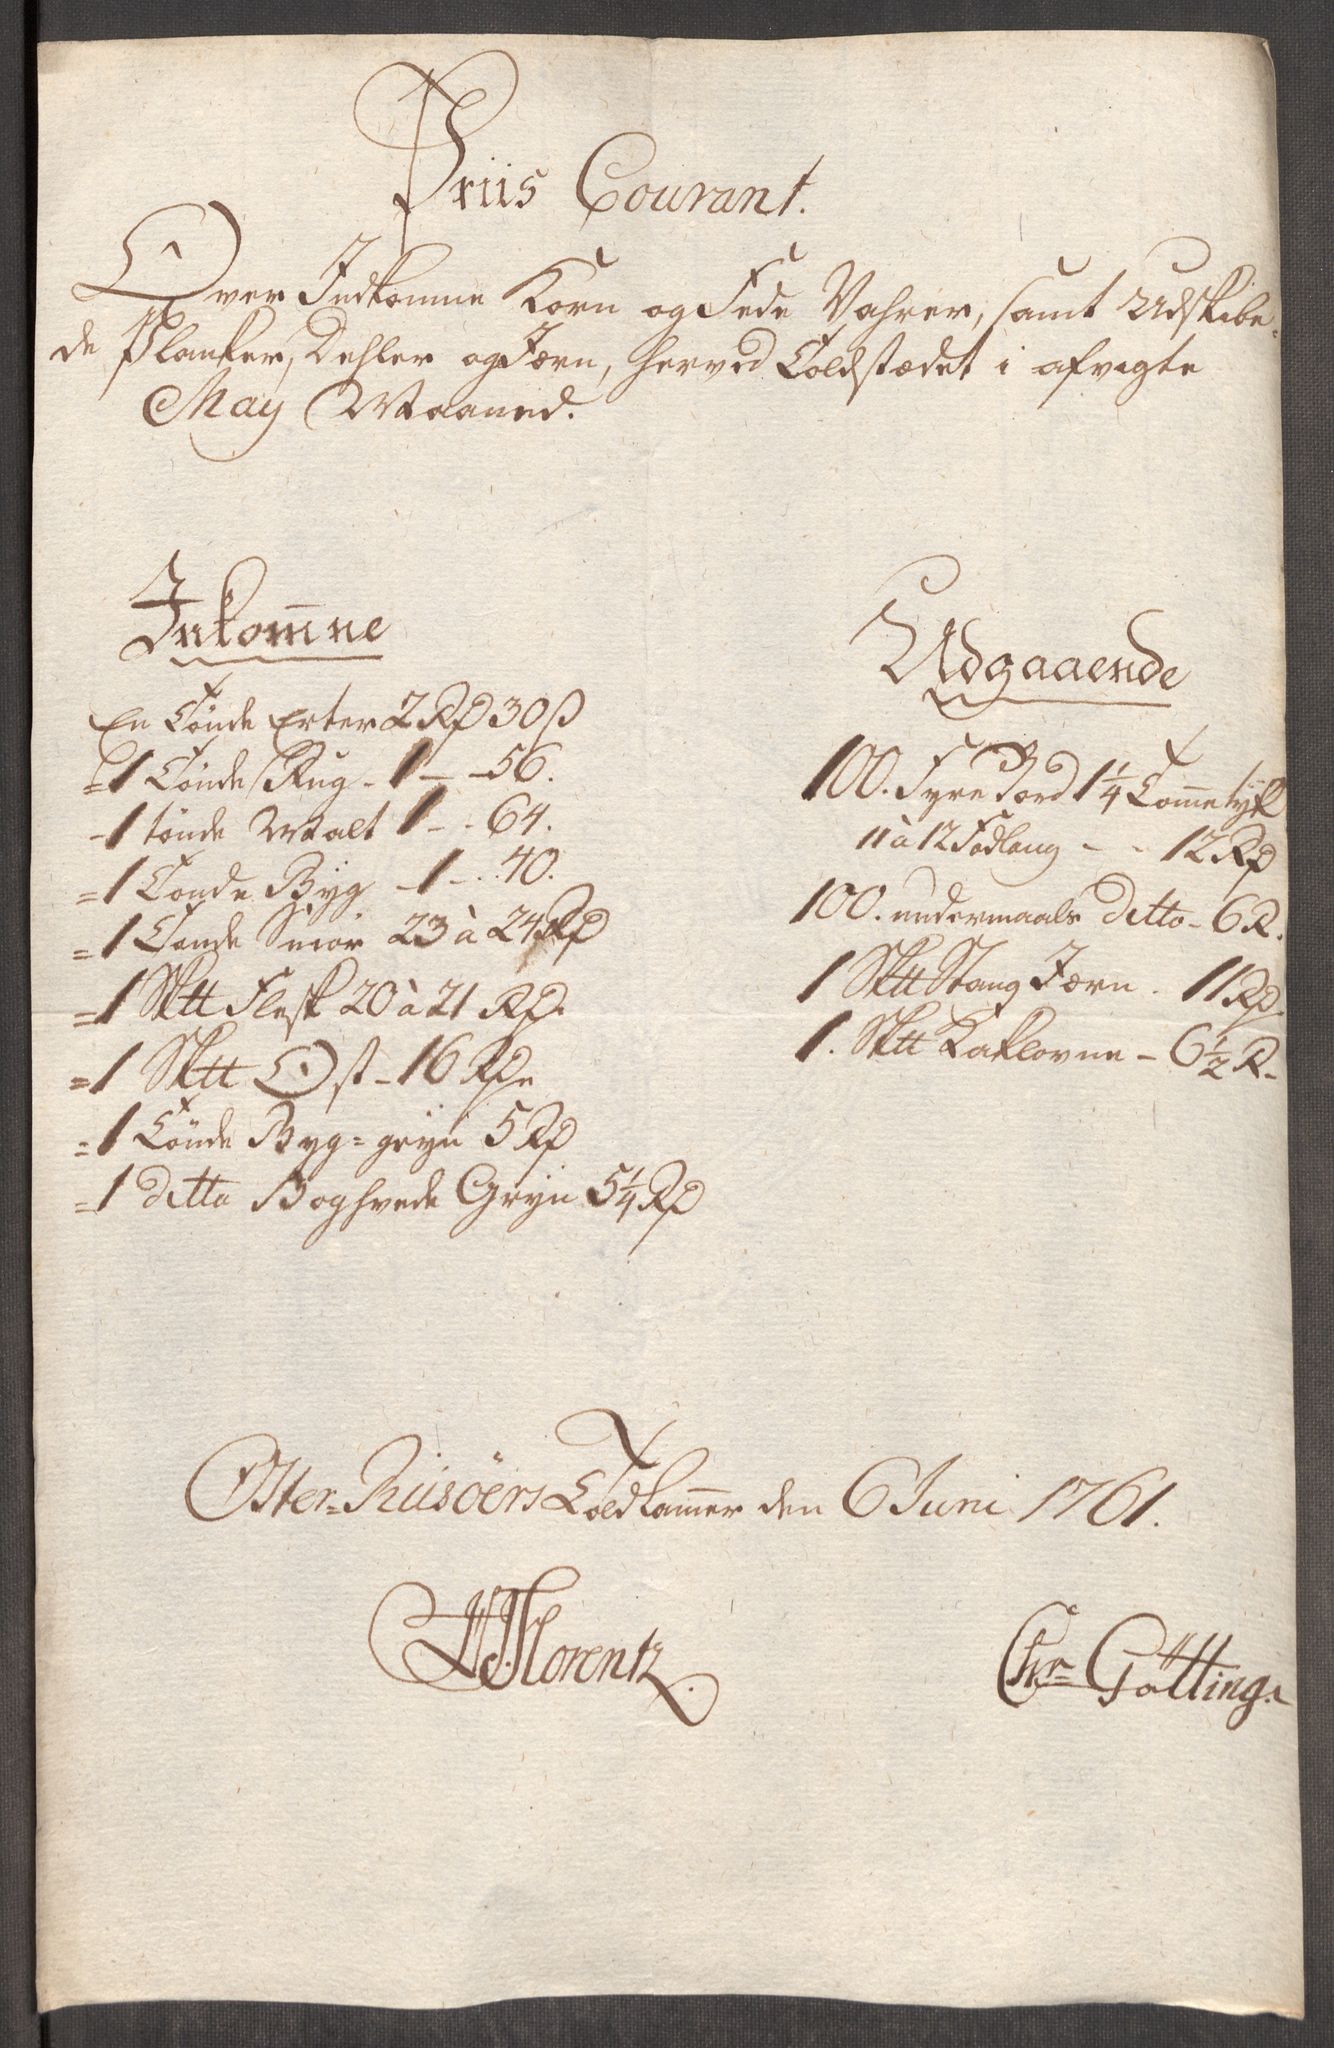 Priis Courant.
Over Indkomne Korn og Fede Vahrer, samt Udskibe-
de Planker, Dehler og Jærn, herved Toldstædet i afvigte
May Maaned.
Inkom̅ne
En Tönde Erter 2 Rd 30 ß
= 1 Tönde Rug - 1 - - 56.
- 1 tönde Malt 1 - - 64.
= 1 Tönde Byg - 1 - . 40.
= 1 Tönde Smör 23 à 24 Rd
= 1 Sk℔ Flesk 20 à 21 Rd.
= 1 Sk℔ Ost - 16 Rd
= 1 Tönde Byg = gryn 5 Rd
= 1 ditto Boghvede Gryn 5 1/4 Rd
Udgaaende
100. Fyre Bord 1 1/4 Tomme tyk
11 à 12 Fod lang - - 12 Rd
100. undermaals ditto - 6 R.
1 Sk℔ Stang Jærn . 11 Rd.
1. Sk℔ Kaklovne - 6 1/2 R -
Öster-Riisöers Toldkam̅er den 6 Juni 1761.
Florentz.
Chr= Götting.